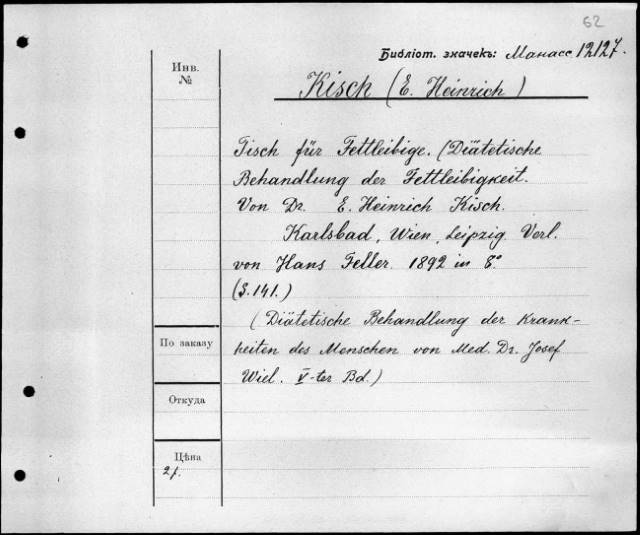 62
Библіот. значекъ: Манасс. 12127.
Инв.
№
Kisch (E. Heinrich)
Tisch für Fettleibige. (Diätetische
Behandlung der Fettleibigkeit.
Von Dr. E. Heinrich Kisch.
Karlsbad, Wien, Leipzig. Verl.
von Hans Feller. 1892 in 8°
(S. 141.)
(Diätetische Behandlung der Krank-
heiten des Menschen von Med. Dr. Josef
Wiel. V-ter Bd.)
По заказу
Откуда
Цѣна
2 р.